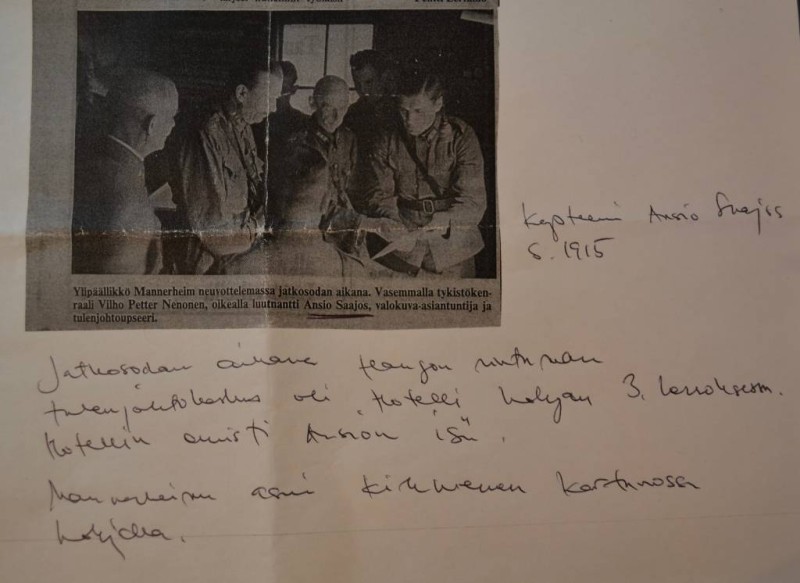 Ylipäällikkö Mannerheim neuvottelemassa jatkosodan aikana. Vasemmalla tykistöken-
raali Vilho Petter Nenonen, oikealla luutnantti Ansio Saajos, valokuva-asiantuntija ja
tulenjohtoupseeri.
Kapteeni Ansio Saajos
s. 1915
Jatkosodan aikana Hangon rintaman
tulenjohtokeskus oli Hotelli Lohjan 3. kerroksessa.
Hotellin omisti Ansion isä.
Mannerheim asui Kirkniemen kartanossa
Lohjalla.